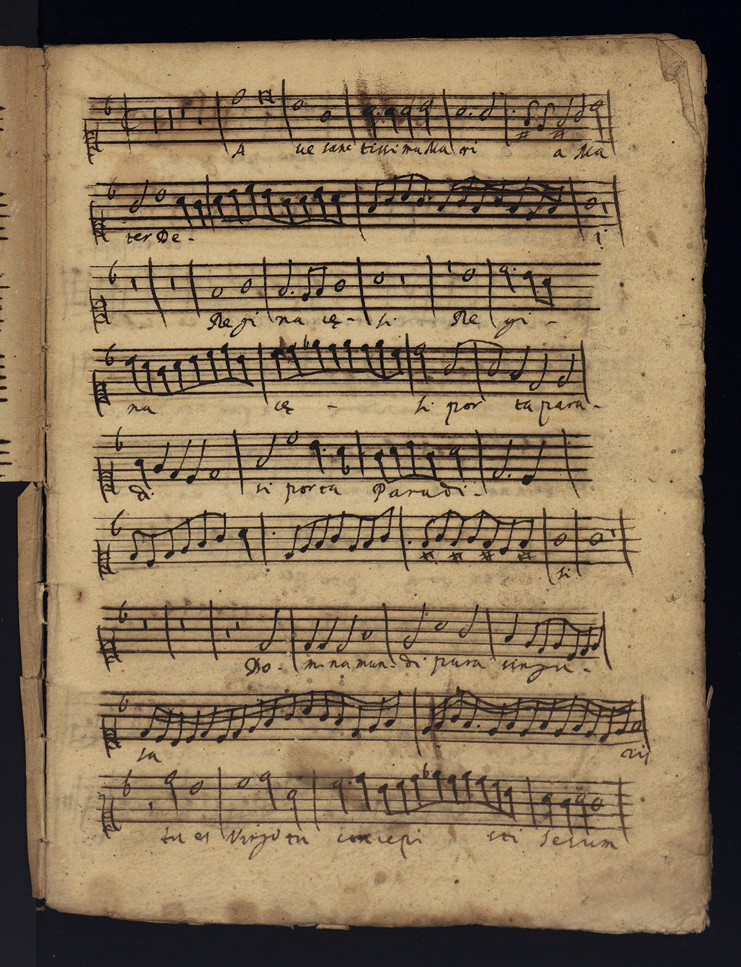 A ue sanc tissima Ma ri a Ma
ter De - i
Regi na cę - li Re gi -
na cę - li por ta para -
di. si porta Paradi -
si
Do - mina mun - di pura singu -
la ris
tu es Virgo tu concepi sti Iesum